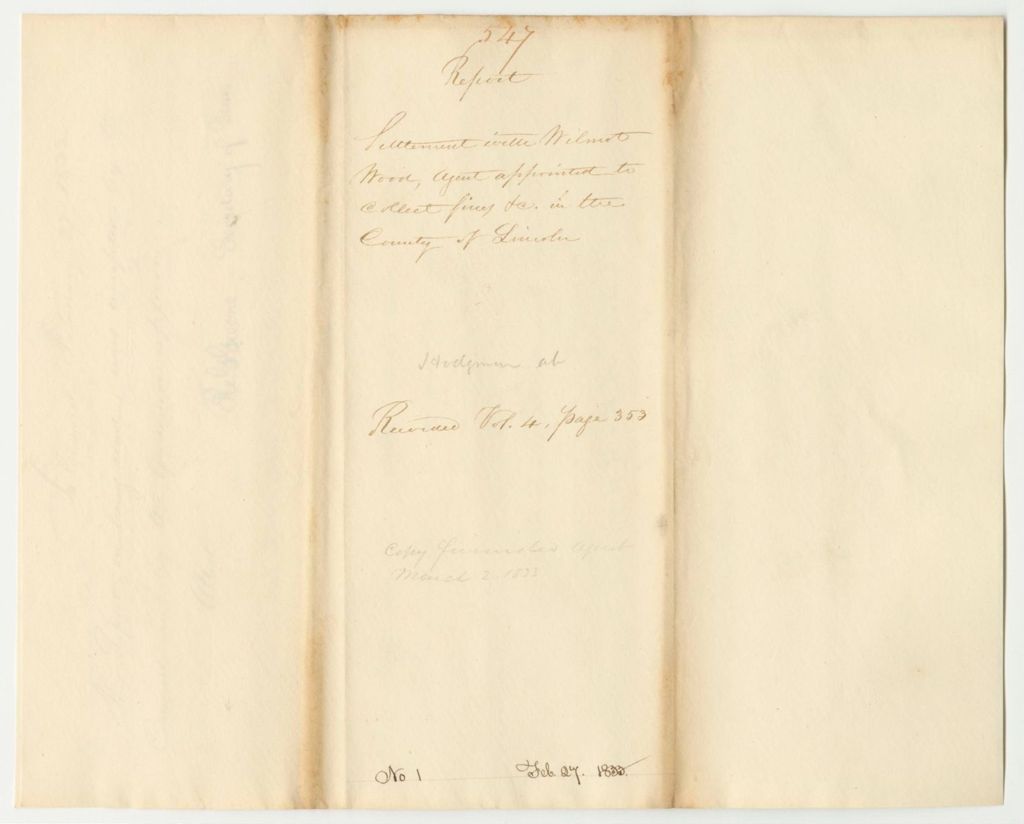 547
Report
Settlement with Wilmot
Wood, Agent appointed to
collect fines &c. in the
County of Lincoln
Hodgman
Recorded Vol. 4, page 353
Copy furnished Agent
March 2, 1833
No 1 Feb. 27. 1833.